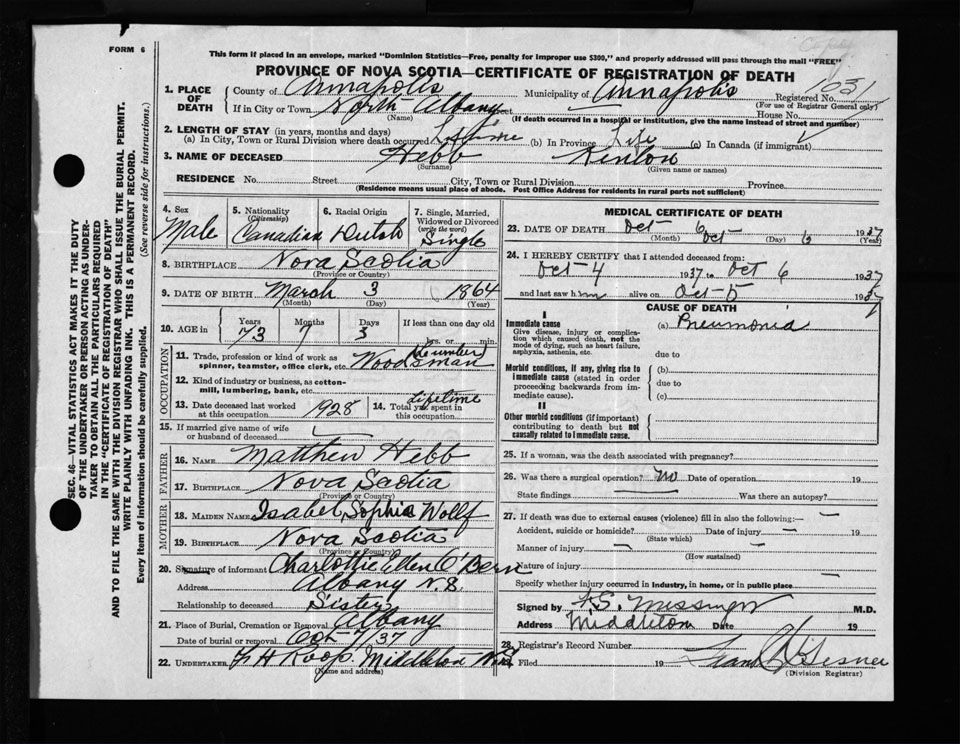 FORM 6
This form if placed in an envelope, marked "Dominion Statistics—Free, penalty for improper use $300," and properly addressed will pass through the mail "FREE"
PROVINCE OF NOVA SCOTIA—CERTIFICATE OF REGISTRATION OF DEATH
1. PLACE OF DEATH
County of Annapolis Municipality of Annapolis Registered No. 1031
(For use of Registrar General only)
If in City or Town North Albany Street House No.
(Name) (If death occurred in a hospital or institution, give the name instead of street and number)
2. LENGTH OF STAY (in years, months and days)
(a) In City, Town or Rural Division where death occurred Lifetime (b) In Province Life (c) In Canada (if immigrant)
3. NAME OF DECEASED Hebb Kenlon
(Surname) (Given name or names)
RESIDENCE No. Street City, Town or Rural Division Province
(Residence means usual place of abode. Post Office Address for residents in rural parts not sufficient)
4. Sex Male
5. Nationality (Citizenship) Canadian
6. Racial Origin Dutch
7. Single, Married, Widowed or Divorced (write the word) Single
8. BIRTHPLACE Nova Scotia
(Province or Country)
9. DATE OF BIRTH March 3 1864
(Month) (Day) (Year)
10. AGE in Years Months Days If less than one day
73 7 3 hrs. or min.
OCCUPATION
11. Trade, profession or kind of work as spinner, teamster, office clerk, etc. Woodsman
12. Kind of industry or business, as cotton-mill, lumbering, bank, etc.
13. Date deceased last worked at this occupation 1928
14. Total yrs. spent in this occupation Lifetime
15. If married give name of wife or husband of deceased
FATHER
16. NAME Matthew Hebb
17. BIRTHPLACE Nova Scotia
(Province or Country)
MOTHER
18. MAIDEN NAME Isabel Sophia Wollf
19. BIRTHPLACE Nova Scotia
(Province or Country)
20. Signature of informant Charlottie Ellen O'Bern
Address Albany N.S
Relationship to deceased Sister
21. Place of Burial, Cremation or Removal Albany
Date of burial or removal Oct 7/37
22. UNDERTAKER F H Roop. Middleton
(Name and address)
MEDICAL CERTIFICATE OF DEATH
23. DATE OF DEATH Oct 6 Oct 6 1937
(Month) (Day) (Year)
24. I HEREBY CERTIFY that I attended deceased from:
Oct 4 1937 to Oct 6 1937
and last saw him alive on Oct 5 1937
CAUSE OF DEATH
I
Immediate cause (a) Pneumonia
Give disease, injury or complication which caused death, not the mode of dying, such as heart failure, asphyxia, asthenia, etc.
due to
Morbid conditions, if any, giving rise to immediate cause (stated in order proceeding backwards from immediate cause).
(b)
due to
(c)
II
Other morbid conditions (if important) contributing to death but not causally related to immediate cause.
25. If a woman, was the death associated with pregnancy?
26. Was there a surgical operation? no Date of operation 19
State findings Was there an autopsy?
27. If death was due to external causes (violence) fill in also the following:—
Accident, suicide or homicide? Date of injury 19
(State which)
Manner of injury
(How sustained)
Nature of injury
Specify whether injury occurred in industry, in home, or in public place
Signed by F.S. Messenger M.D.
Address Middleton Date 19
28. Registrar's Record Number
Filed 19
(Division Registrar)
SEC. 46—VITAL STATISTICS ACT MAKES IT THE DUTY
OF THE UNDERTAKER OR PERSON ACTING AS UNDER-
TAKER TO OBTAIN ALL THE PARTICULARS REQUIRED
IN THE "CERTIFICATE OF REGISTRATION OF DEATH"
AND TO FILE THE SAME WITH THE DIVISION REGISTRAR WHO SHALL ISSUE THE BURIAL PERMIT.
WRITE PLAINLY WITH UNFADING INK. THIS IS A PERMANENT RECORD.
Every item of information should be carefully supplied. (See reverse side for instructions.)